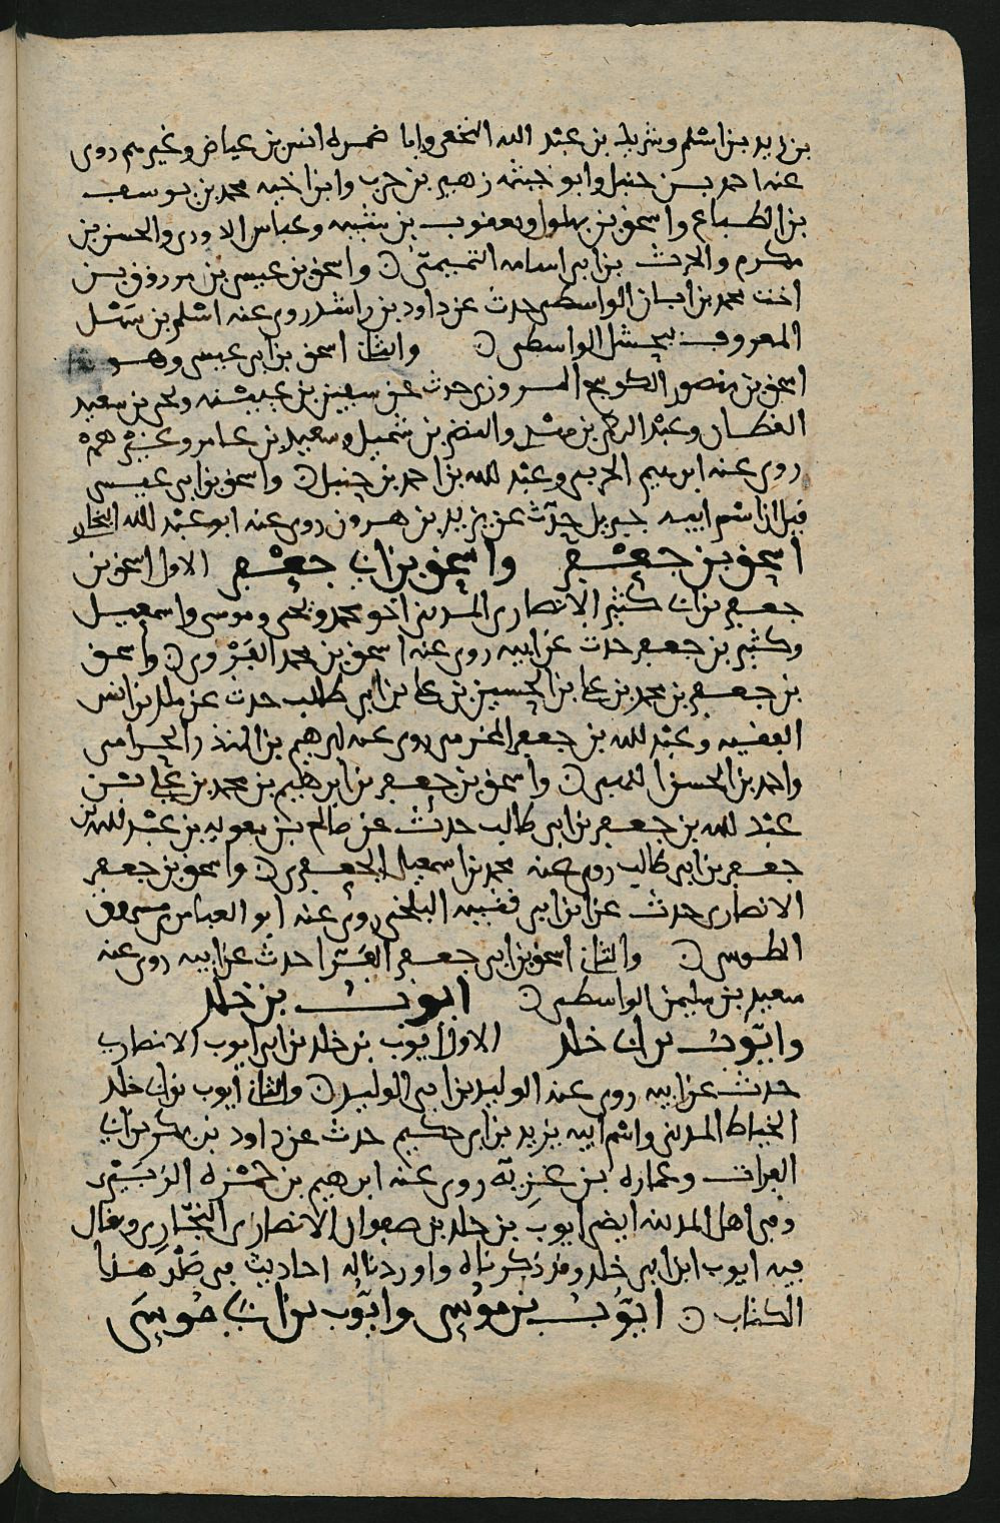 بن زيد بن اسلم وشريك بن عبد الله النخعي وابا ضمرة انس بن عياض وغيرهم روى
عنه احمد بن حنبل وابو خيثمه زهير بن حرب وابن اخيه محمد بن يوسف
بن الطباع واسحق بن بهلول ويعقوب بن شيبه وعباس الدوري والحسن بن
مكرم والحرث بن ابي اسامه التميمي ۞ واسحق بن عيسى بن
اخت محمد بن ابان الواسطي حدث عن داود بن راشد روى عنه اسلم بن سهل
المعروف ببحشل الواسطي ۞ والثاني اسحق بن ابي عيسى وهو
اسحق بن منصور الكوسج المروزي حدث عن سفين بن عيينه ويحيى بن سعيد
القطان وعبد الرحمن بن مهدي والنضر بن شميل وسعيد بن عامر وغيرهم
روى عنه ابرهيم الحربي وعبد الله بن احمد بن حنبل ۞ واسحق بن ابي عيسى
قيل ان اسم ابيه جبريل حدث عن يزيد بن هرون روى عنه ابو عبد الله البخاري
اسحق بن جعفر واسحق بن ابي جعفر الاول اسحق بن
جعفر بن ابي كثير الانصاري المديني اخو محمد ويحيى وموسى واسمعيل
وكثير بن جعفر حدث عن ابيه روى عنه اسحق بن محمد الفروي ۞ واسحق
بن جعفر بن محمد بن علي بن الحسين بن علي بن ابي طالب حدث عن ملك بن انس
الفقيه وعبد الله بن جعفر المخرمي روى عنه ابرهيم بن المنذر الحزامي
واحمد بن الحسن ۞ واسحق بن جعفر بن ابرهيم بن محمد بن علي بن
عبد الله بن جعفر بن ابي طالب حدث عن صالح بن معويه بن عبد الله بن
جعفر بن ابي طالب روى عنه محمد بن اسمعيل الجعفري ۞ واسحق بن جعفر
الانصاري حدث عن ابن ابي فقيه البلخي روى عنه ابو العباس بن مسروق
الطوسي ۞ والثاني اسحق بن ابي جعفر الفرا حدث عن ابيه روى عنه
سعيد بن سليمن الواسطي ۞ ايوب بن خلد
وايوب بن ابي خلد الاول ايوب بن خلد بن ابي ايوب الانصاري
حدث عن ابيه روى عنه الوليد بن ابي الوليد ۞ والثاني ايوب بن ابي خلد
الخياط المديني واسم ابيه يزيد بن ابي حكيم حدث عن داود بن بكر بن ابي
الفرات وعماره بن غزيه روى عنه ابرهيم بن حمزه الزبيري
وفي اهل المدينه ايضا ايوب بن خلد بن صفوان الانصاري النجاري ويقال
فيه ايوب ابن ابي خلد وقد ذكرناه واوردنا له احاديث في صدر هذا
الكتاب ۞ ايوب بن موسى وايوب بن ابي موسى